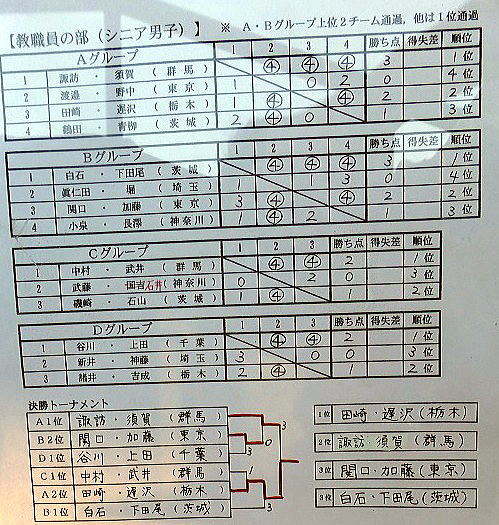 【教職員の部（シニア男子）】 ※ A・Bグループ上位2チーム通過，他は1位通過
Aグループ 1 2 3 4 勝ち点 得失差 順位
1 諏訪・須賀（群馬） ④ ④ ④ 3 1位
2 渡邉・野中（東京） 1 0 2 0 4位
3 田崎・遅沢（栃木） 1 ④ ④ 2 2位
4 鶴田・青柳（茨城） 2 ④ 0 1 3位
Bグループ 1 2 3 4 勝ち点 得失差 順位
1 白石・下田尾（茨城） ④ ④ ④ 3 1位
2 眞仁田・堀（埼玉） 1 1 3 0 4位
3 関口・加藤（東京） 3 ④ ④ 2 2位
4 小泉・長澤（神奈川） 1 ④ 2 1 3位
Cグループ 1 2 3 勝ち点 得失差 順位
1 中村・武井（群馬） ④ ④ 2 1位
2 武藤・国吉石井（神奈川） 0 2 0 3位
3 磯崎・石山（茨城） 1 ④ 1 2位
Dグループ 1 2 3 勝ち点 得失差 順位
1 谷川・上田（千葉） ④ ④ 2 1位
2 新井・神藤（埼玉） 3 0 0 3位
3 諸井・吉成（栃木） 2 ④ 1 2位
決勝トーナメント
A1位 諏訪・須賀（群馬） 3
B2位 関口・加藤（東京） 0
D1位 谷川・上田（千葉） 3
C1位 中村・武井（群馬） 1
A2位 田崎・遅沢（栃木）
B1位 白石・下田尾（茨城） 3
1位 田崎・遅沢（栃木）
2位 諏訪・須賀（群馬）
3位 関口・加藤（東京）
3位 白石・下田尾（茨城）